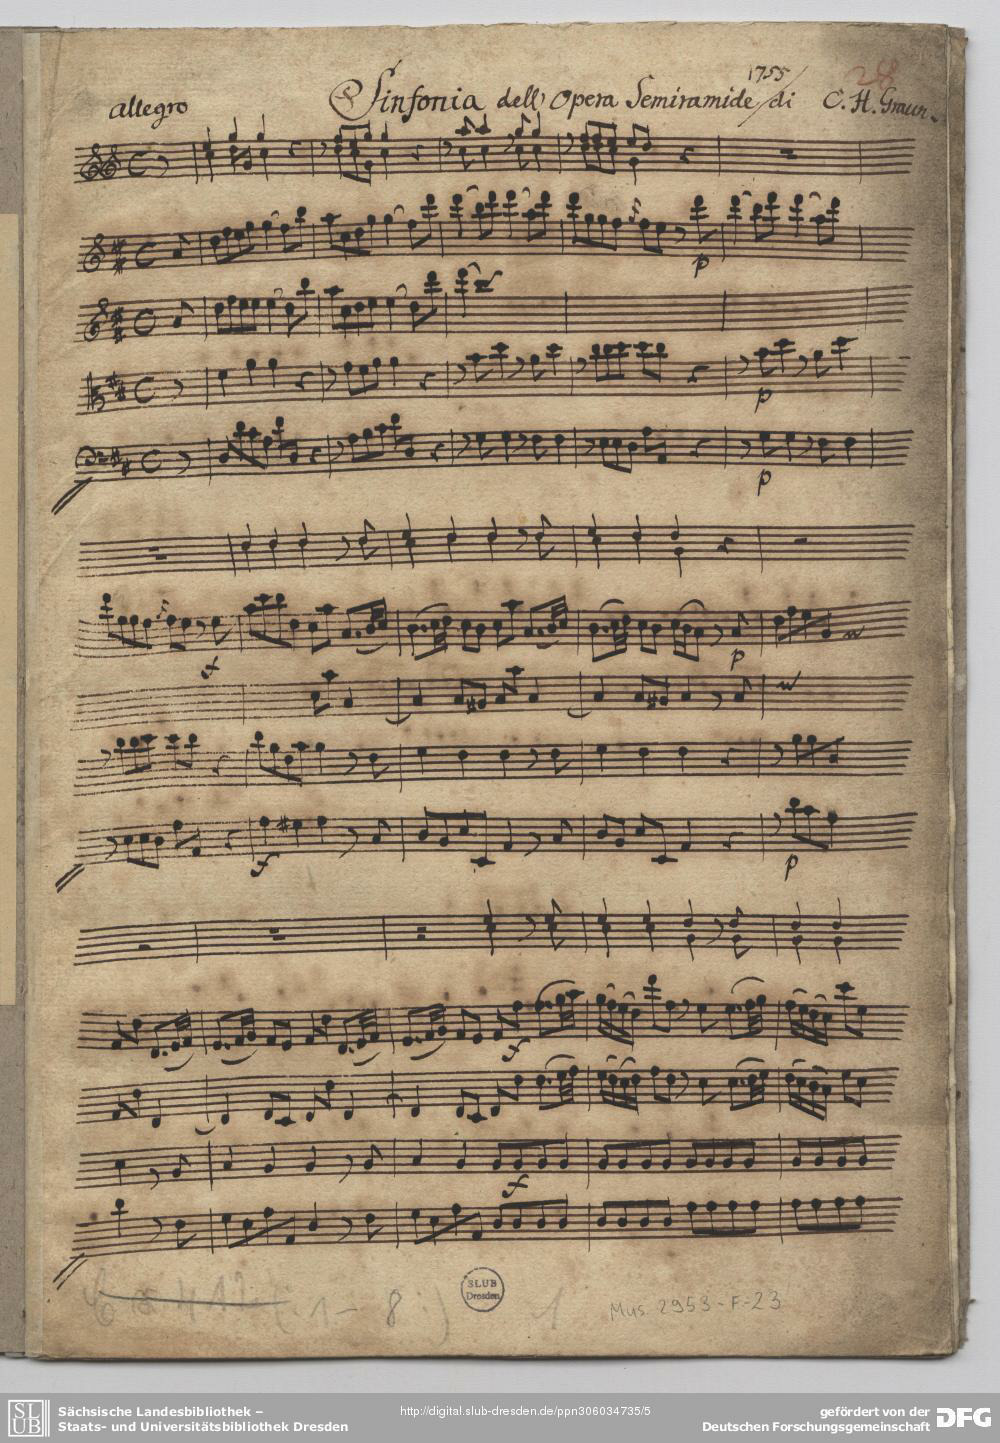 1755
28
allegro Sinfonia dell Opera Semiramide di C. H. Graun.
p
p
p
f
p
f
p
f
f
(1-8.) 1
SLUB
Dresden
Mus. 2953-F-23
SLUB
Sächsische Landesbibliothek –
Staats- und Universitätsbibliothek Dresden
http://digital.slub-dresden.de/ppn306034735/5
gefördert von der
Deutschen Forschungsgemeinschaft
DFG